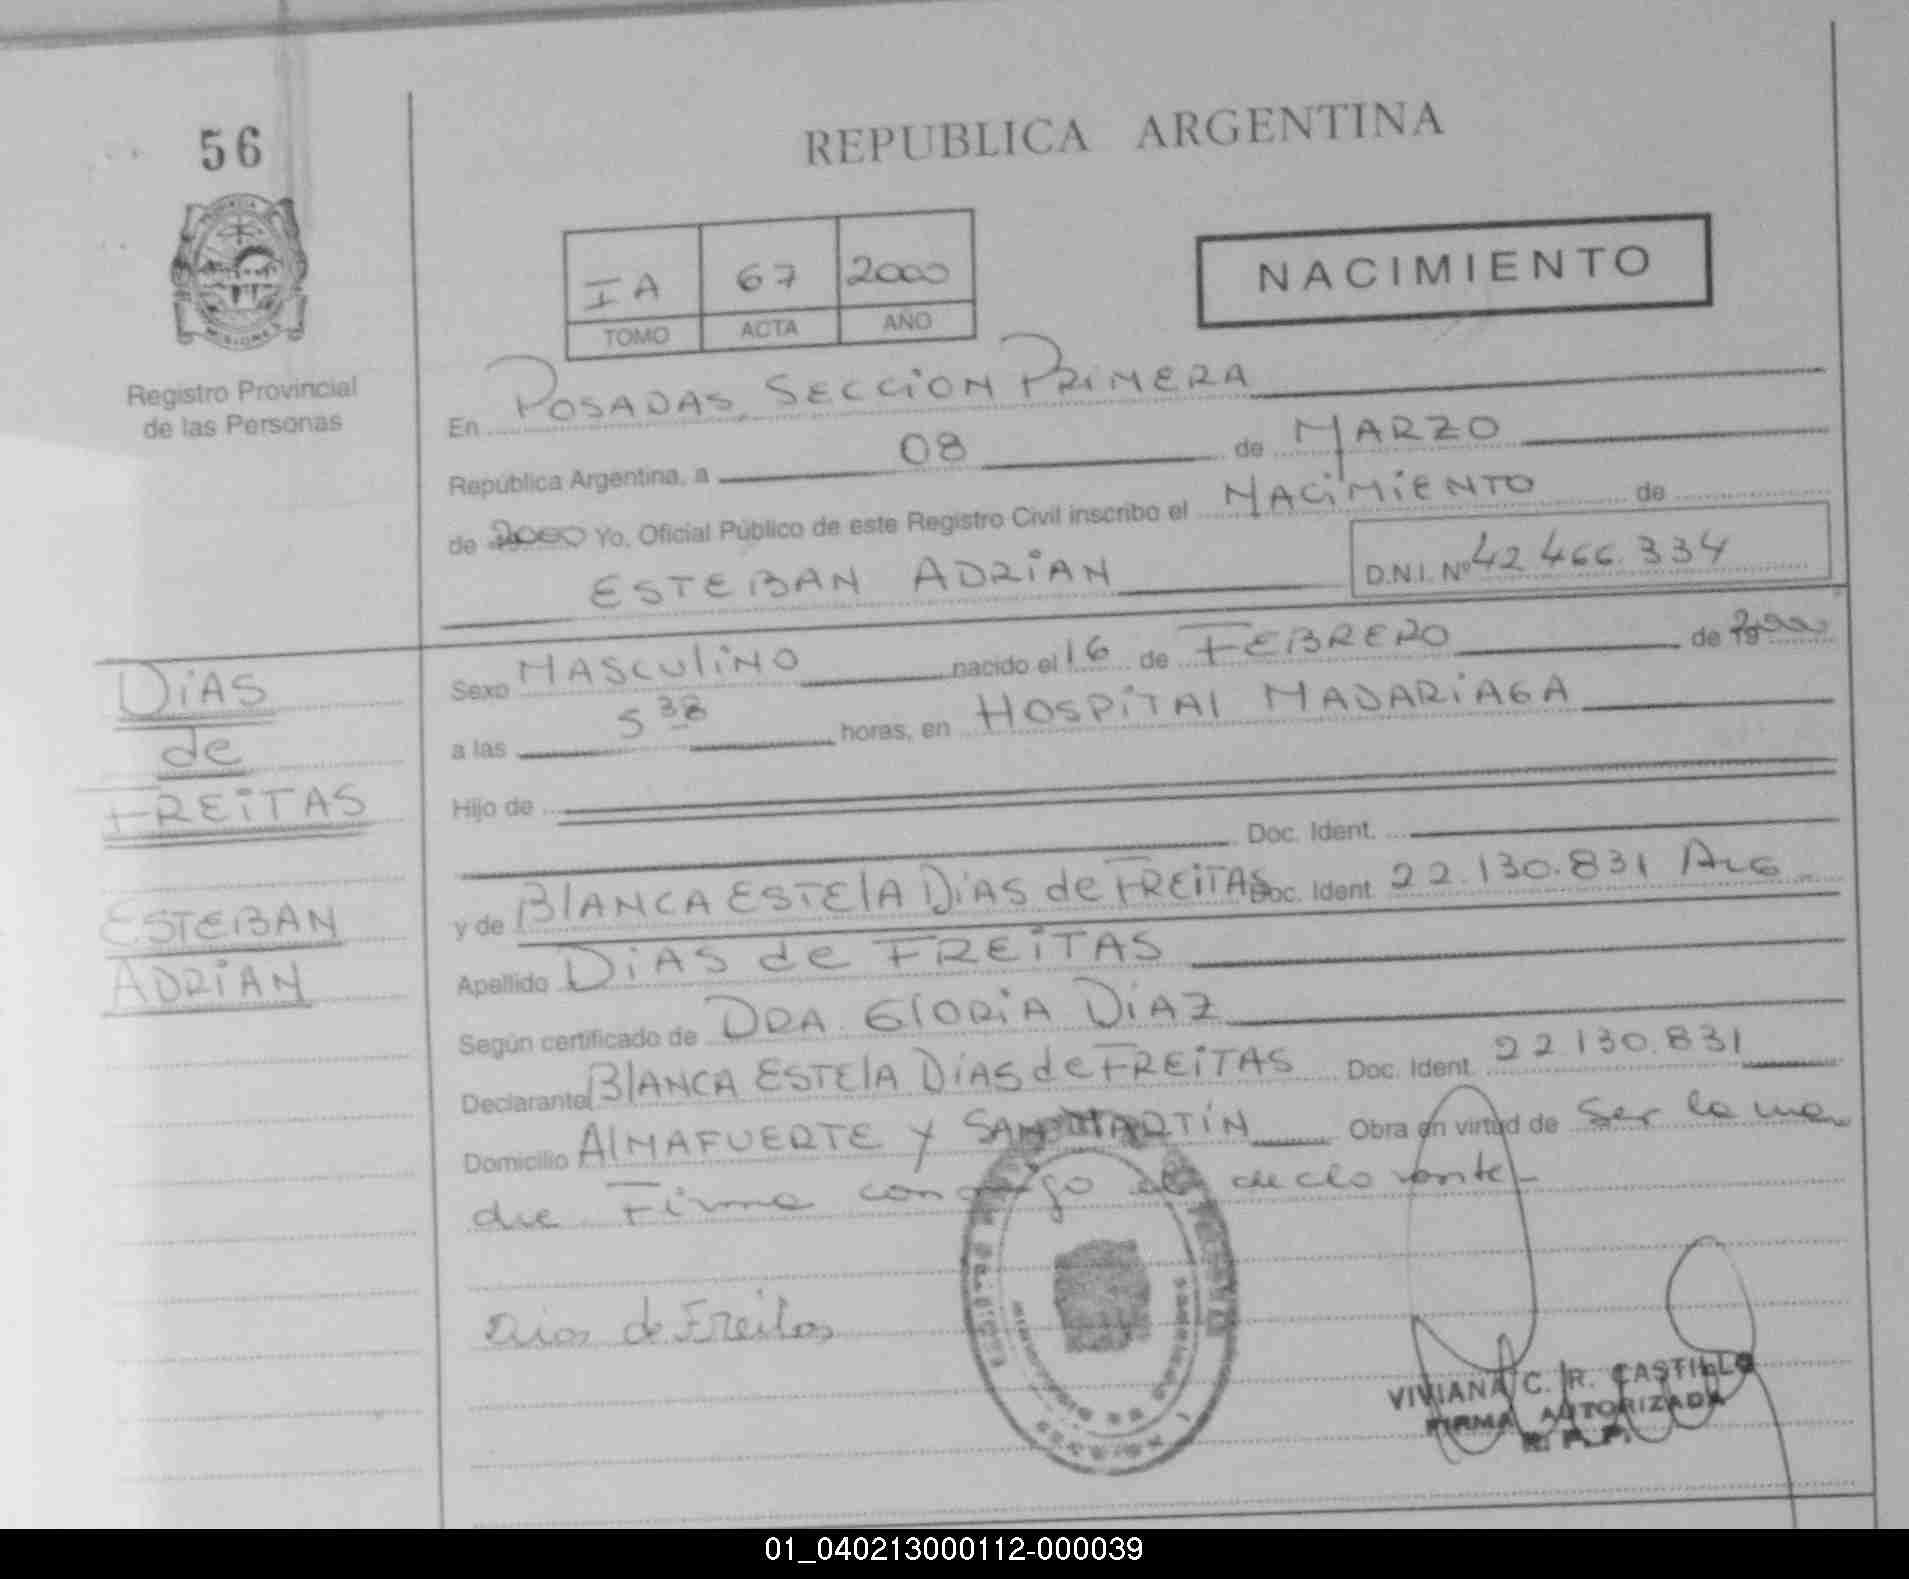 56
REPUBLICA ARGENTINA
IA 67 2000
TOMO ACTA AÑO
NACIMIENTO
Registro Provincial
de las Personas
En POSADAS, SECCION PRIMERA
República Argentina, a 08 de MARZO
de 2000 Yo, Oficial Público de este Registro Civil inscribo el NACIMIENTO de
ESTEBAN ADRIAN D.N.I. Nº 42 466.334
DIAS
de
FREITAS
ESTEBAN
ADRIAN
Sexo MASCULINO nacido el 16 de FEBRERO de 2000
a las 5 38 horas, en HOSPITAL MADARIAGA
Hijo de
Doc. Ident.
y de BLANCA ESTELA DIAS de FREITAS Doc. Ident. 22.130.831 ARG
Apellido DIAS de FREITAS
Según certificado de DRA. GLORIA DIAZ
Declarante BLANCA ESTELA DIAS de FREITAS Doc. Ident. 22.130.831
Domicilio ALMAFUERTE Y SAN MARTÍN Obra en virtud de ser la ma
dre Firma conmigo declarante
Dias de Freitas
VIVIANA C. R. CASTILLO
FIRMA AUTORIZADA
R. P. P.
01_040213000112-000039